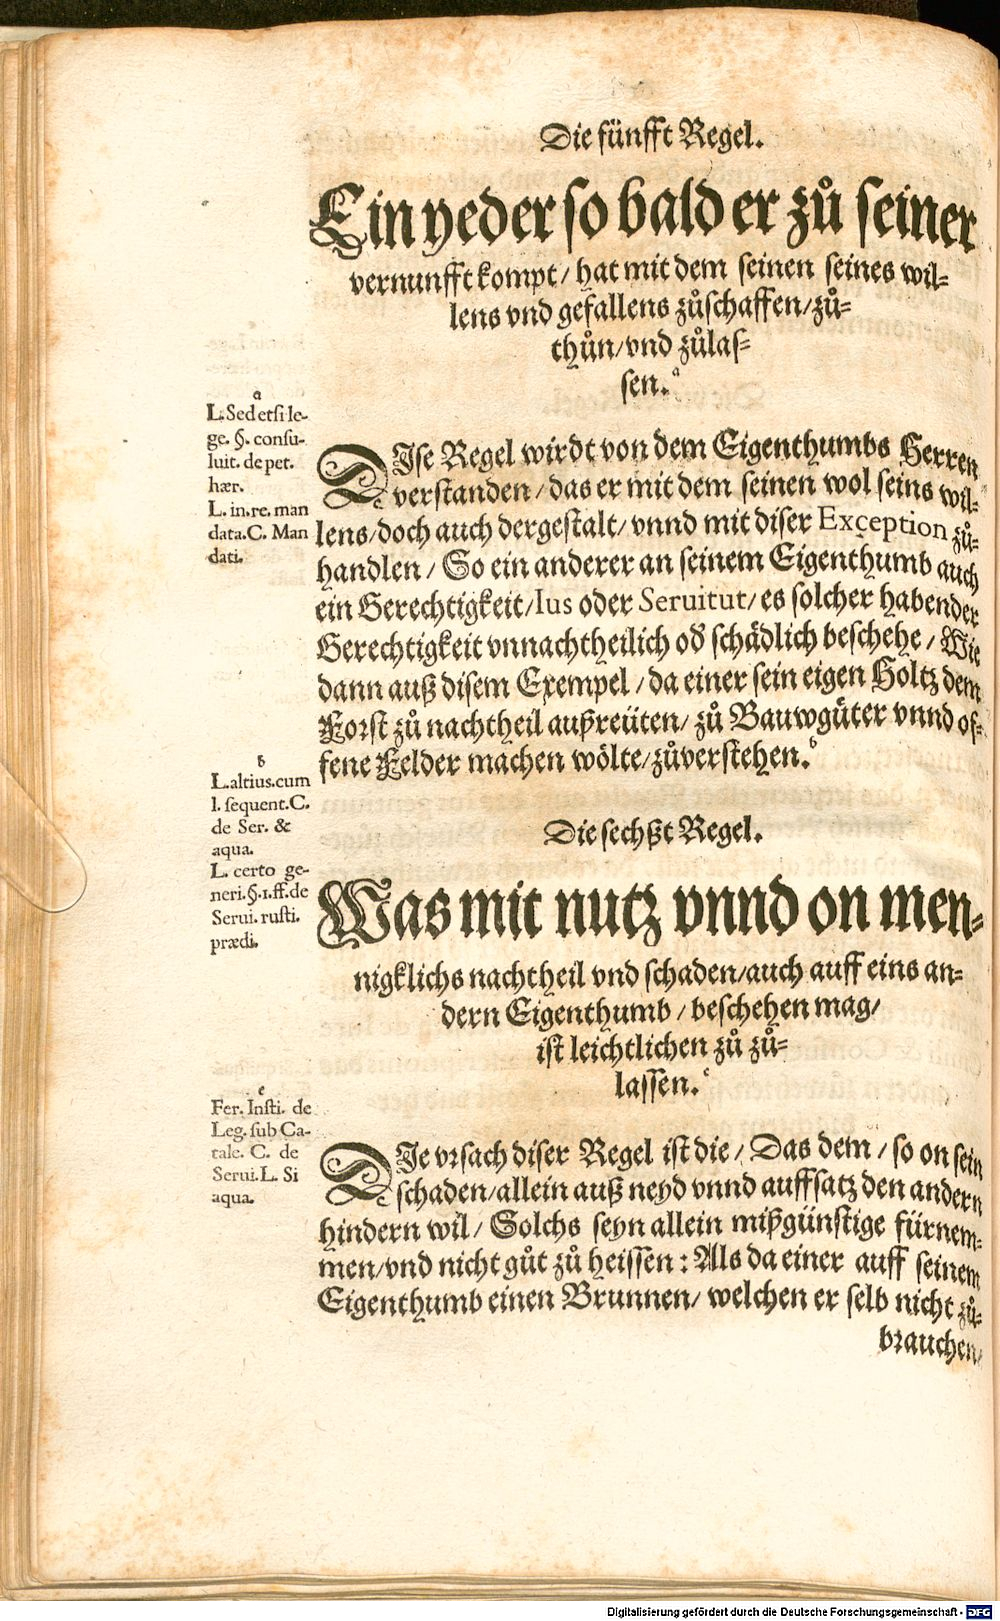 Die fünfft Regel.
Ein yeder so bald er zů seiner
vernunfft kompt / hat mit dem seinen seines wil⸗
lens vnd gefallens zůschaffen / zů⸗
thůn / vnd zůlas⸗
sen. a
a
L. Sed etsi le-
ge. §. consu-
luit. de pet.
hær.
L. in. re. man
data. C. Man
dati.
DIse Regel wirdt von dem Eigenthumbs Herren
verstanden / das er mit dem seinen wol seins wil⸗
lens / doch auch dergestalt / vnnd mit diser Exception zů⸗
handlen / So ein anderer an seinem Eigenthumb auch
ein Gerechtigkeit / Ius oder Seruitut / es solcher habender
Gerechtigkeit vnnachtheilich od̕ schädlich beschehe / Wie
dann auß disem Exempel / da einer sein eigen Holtz dem
Forst zů nachtheil außreüten / zů Bauwgüter vnnd of⸗
fene Felder machen wölte / zůverstehen. b
b
L. altius. cum
l. sequent. C.
de Ser. &
aqua.
L. certo ge-
neri. §. 1. ff. de
Serui. rusti.
prædi.
Die sechßt Regel.
Was mit nutz vnnd on men⸗
nigklichs nachtheil vnd schaden / auch auff eins an⸗
dern Eigenthumb / beschehen mag /
ist leichtlichen zů zů⸗
lassen. c
c
Fer. Insti. de
Leg. sub Ca-
tale. C. de
Serui. L. Si
aqua.
DIe vrsach diser Regel ist die / Das dem / so on sein
schaden / allein auß neyd vnnd auffsatz den andern
hindern wil / Solchs seyn allein mißgünstige fürnem⸗
men / vnd nicht gůt zů heissen : Als da einer auff seinem
Eigenthumb einen Brunnen / welchen er selb nicht zů⸗
brauchen /
Digitalisierung gefördert durch die Deutsche Forschungsgemeinschaft - DFG